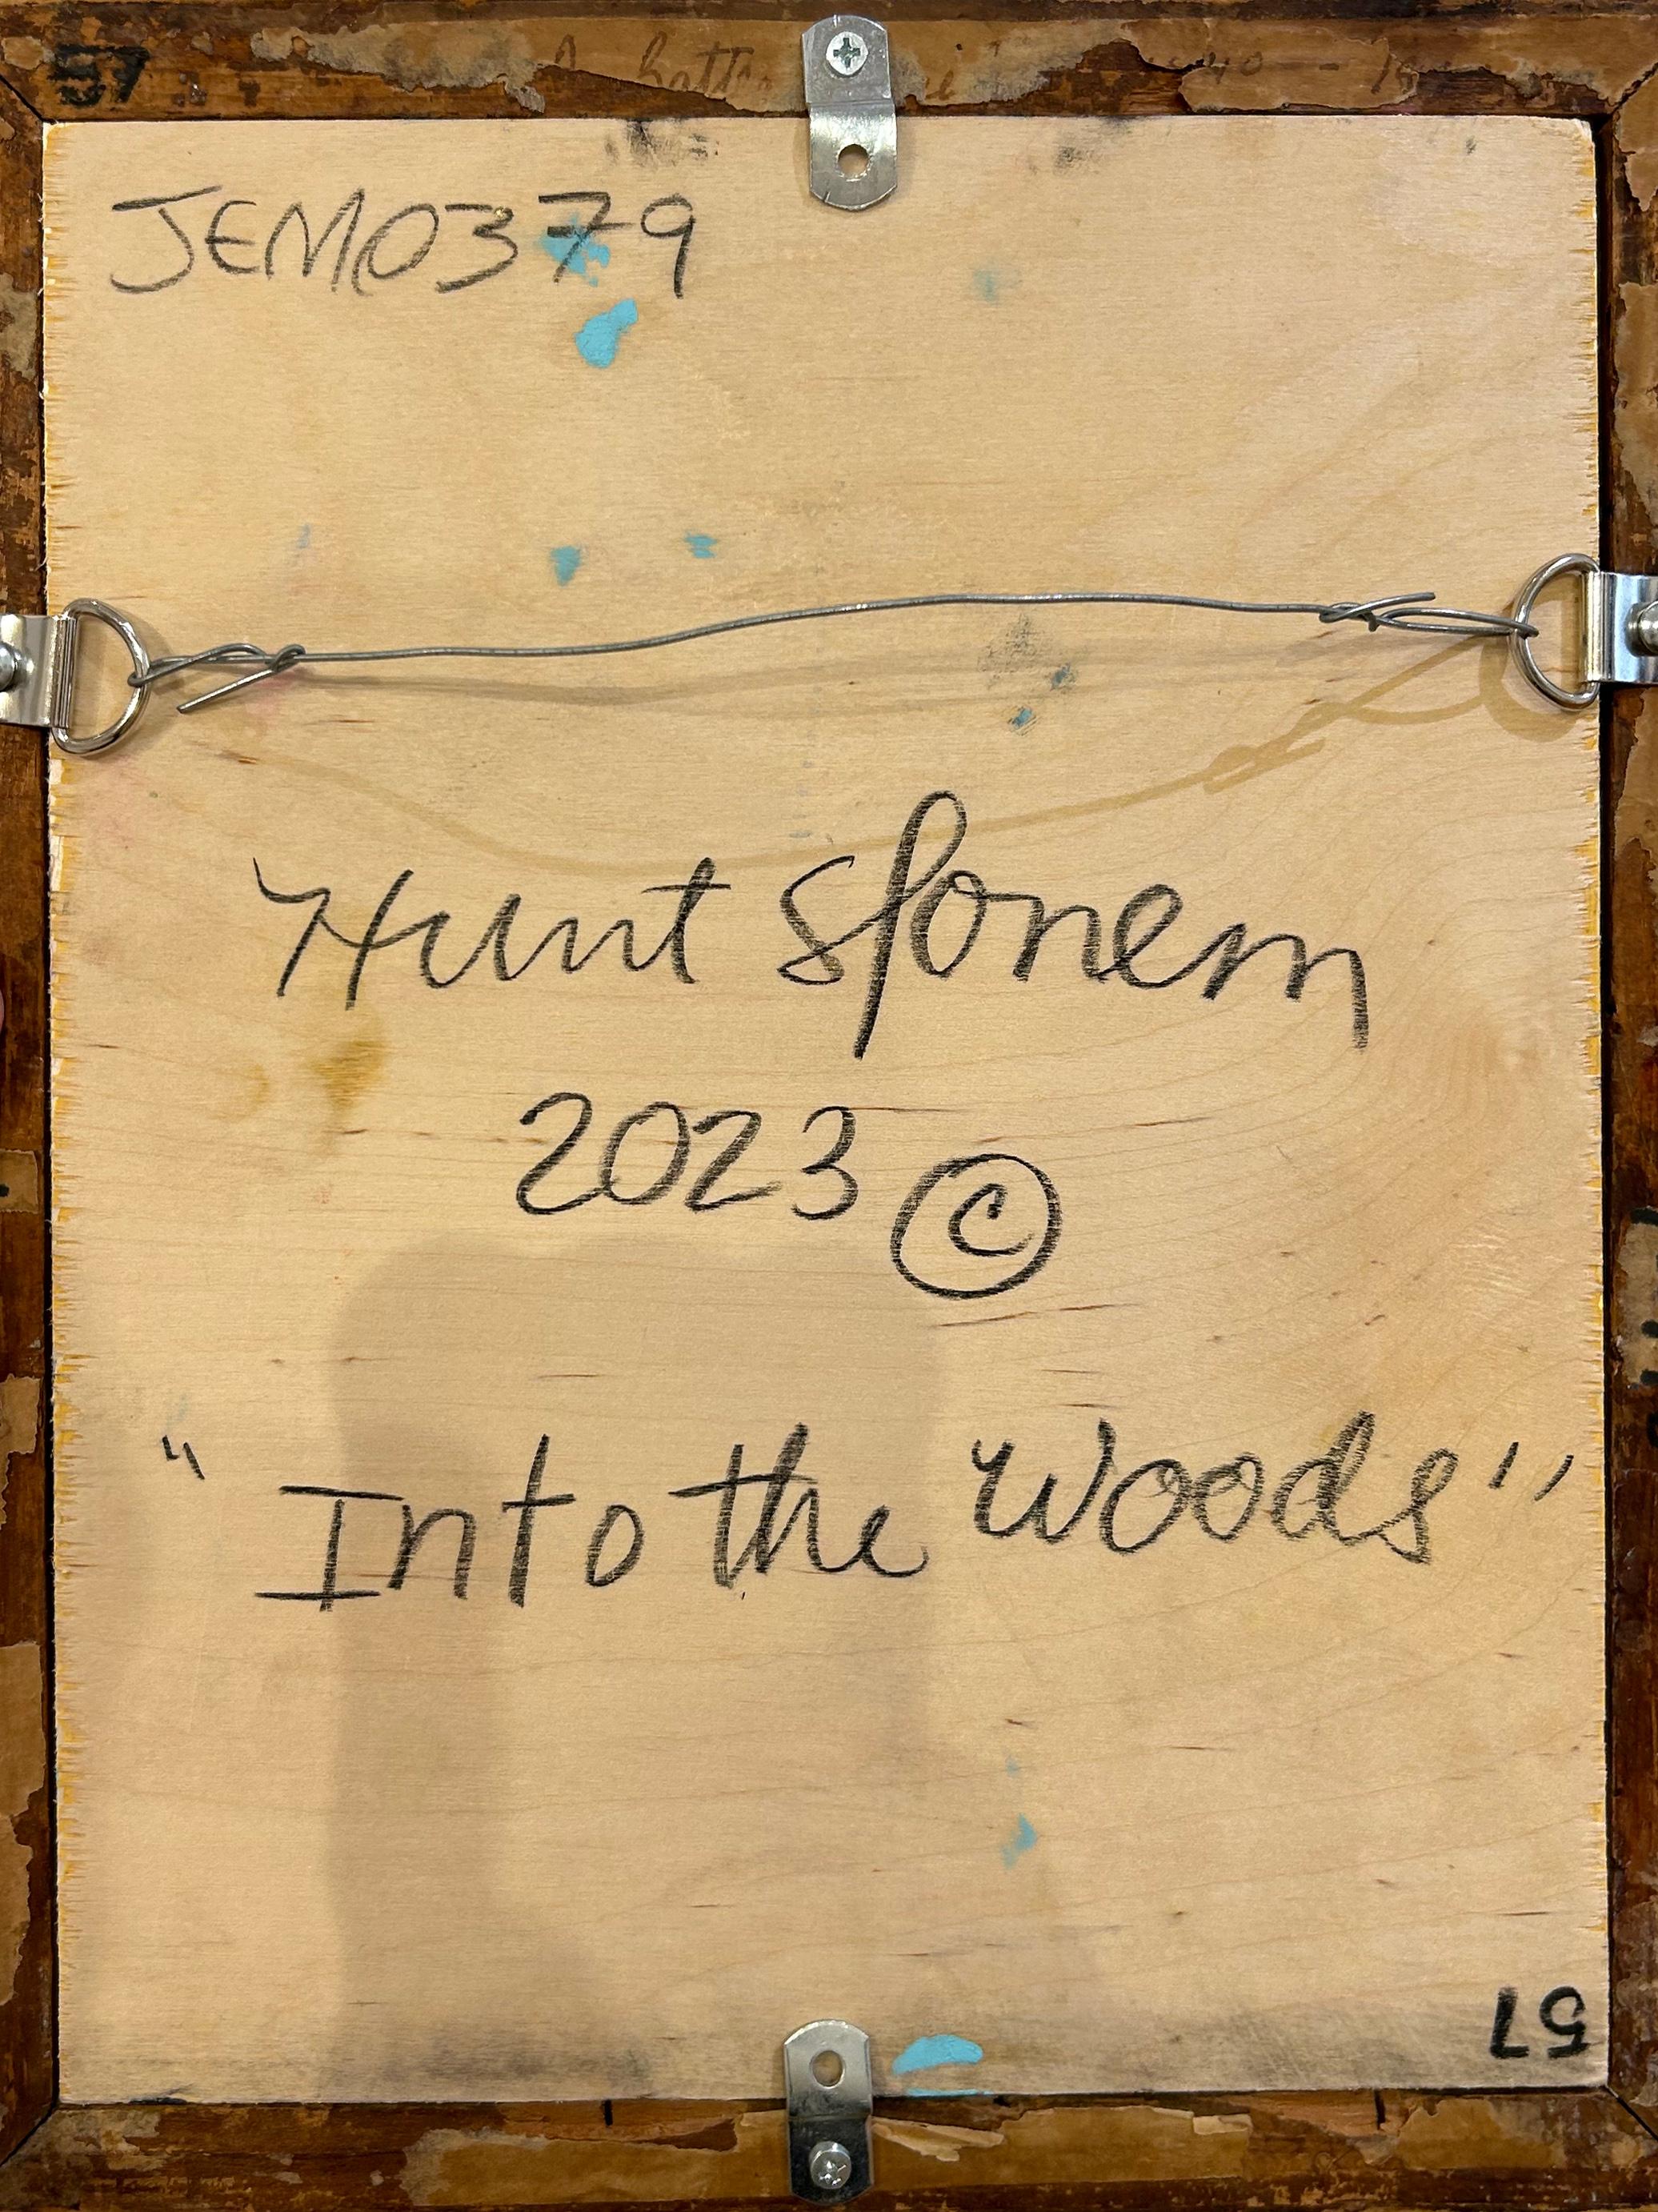 57
JEM0379
Hunt Slonem
2023 ©
"Into the Woods"
57